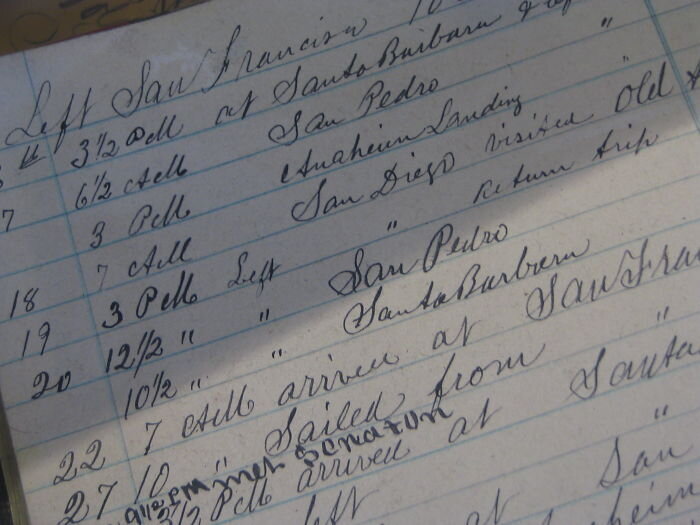 Left San Francisco 10
3½ PM at Santa Barbara & of
6½ AM San Pedro "
7 3 PM Anaheim Landing "
7 AM San Diego visited Old
18 3 PM Left " Return trip
19 12½ " " San Pedro
20 10½ " " Santa Barbara
22 7 AM arrived at San Fran
27 10 " Sailed from "
9½ PM met Senator
3½ PM arrived at Santa
left "
at San